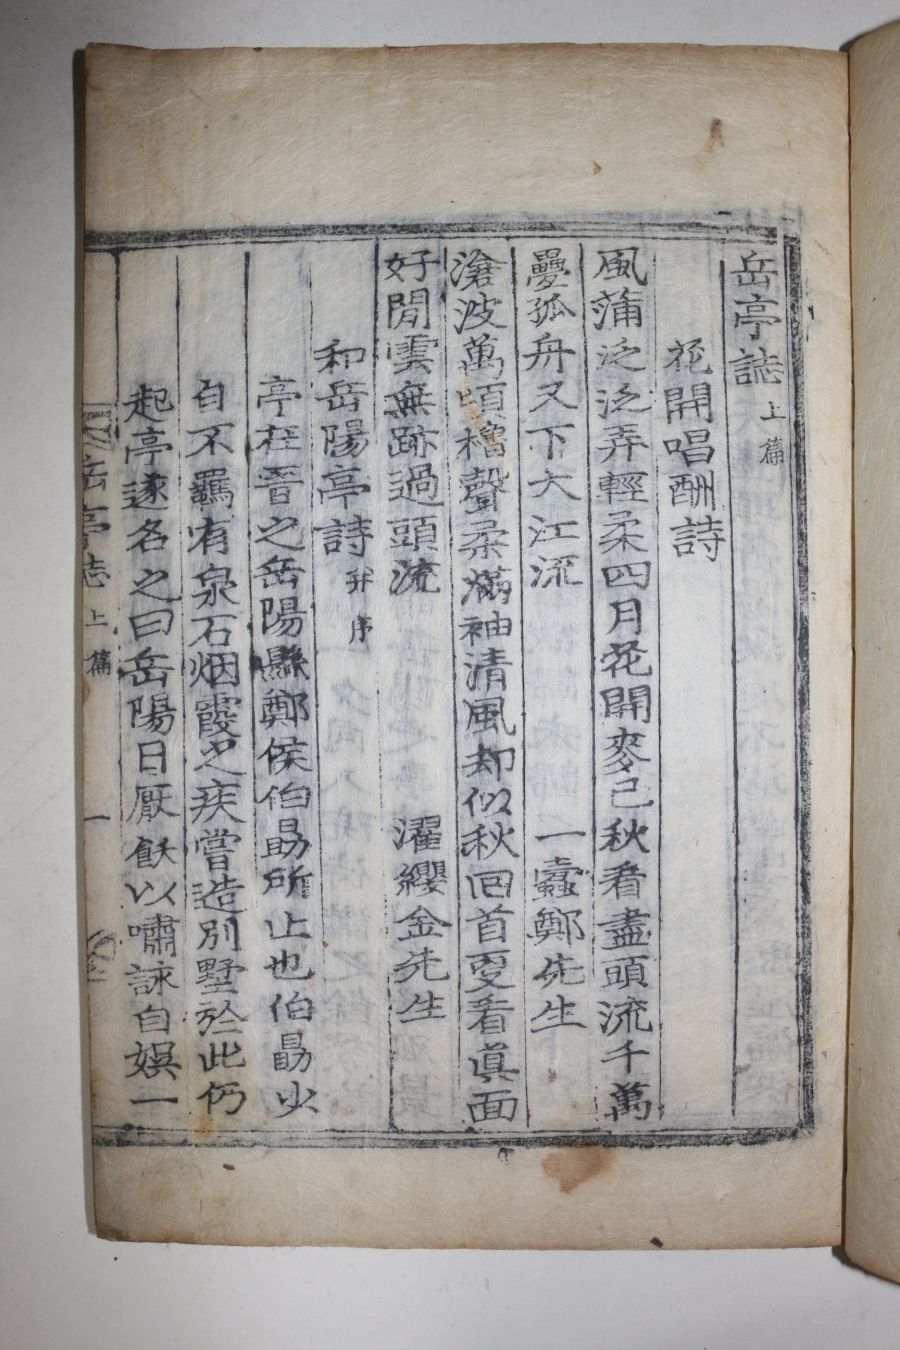 岳亭誌 上篇
花開唱酬詩
風蒲泛泛弄輕柔四月花開麥已秋看盡頭流千萬
疊孤舟又下大江流 一蠹鄭先生
滄波萬頃櫓聲柔滿袖清風却似秋回首更看眞面
好閒雲無跡過頭流 濯纓金先生
和岳陽亭詩 幷序
亭在晋之岳陽縣鄭侯伯勗所止也伯勗少
自不羈有泉石烟霞之疾嘗造別墅於此仍
起亭遂名之曰岳陽日厭飫以嘯詠自娛一
岳亭誌 上篇 一